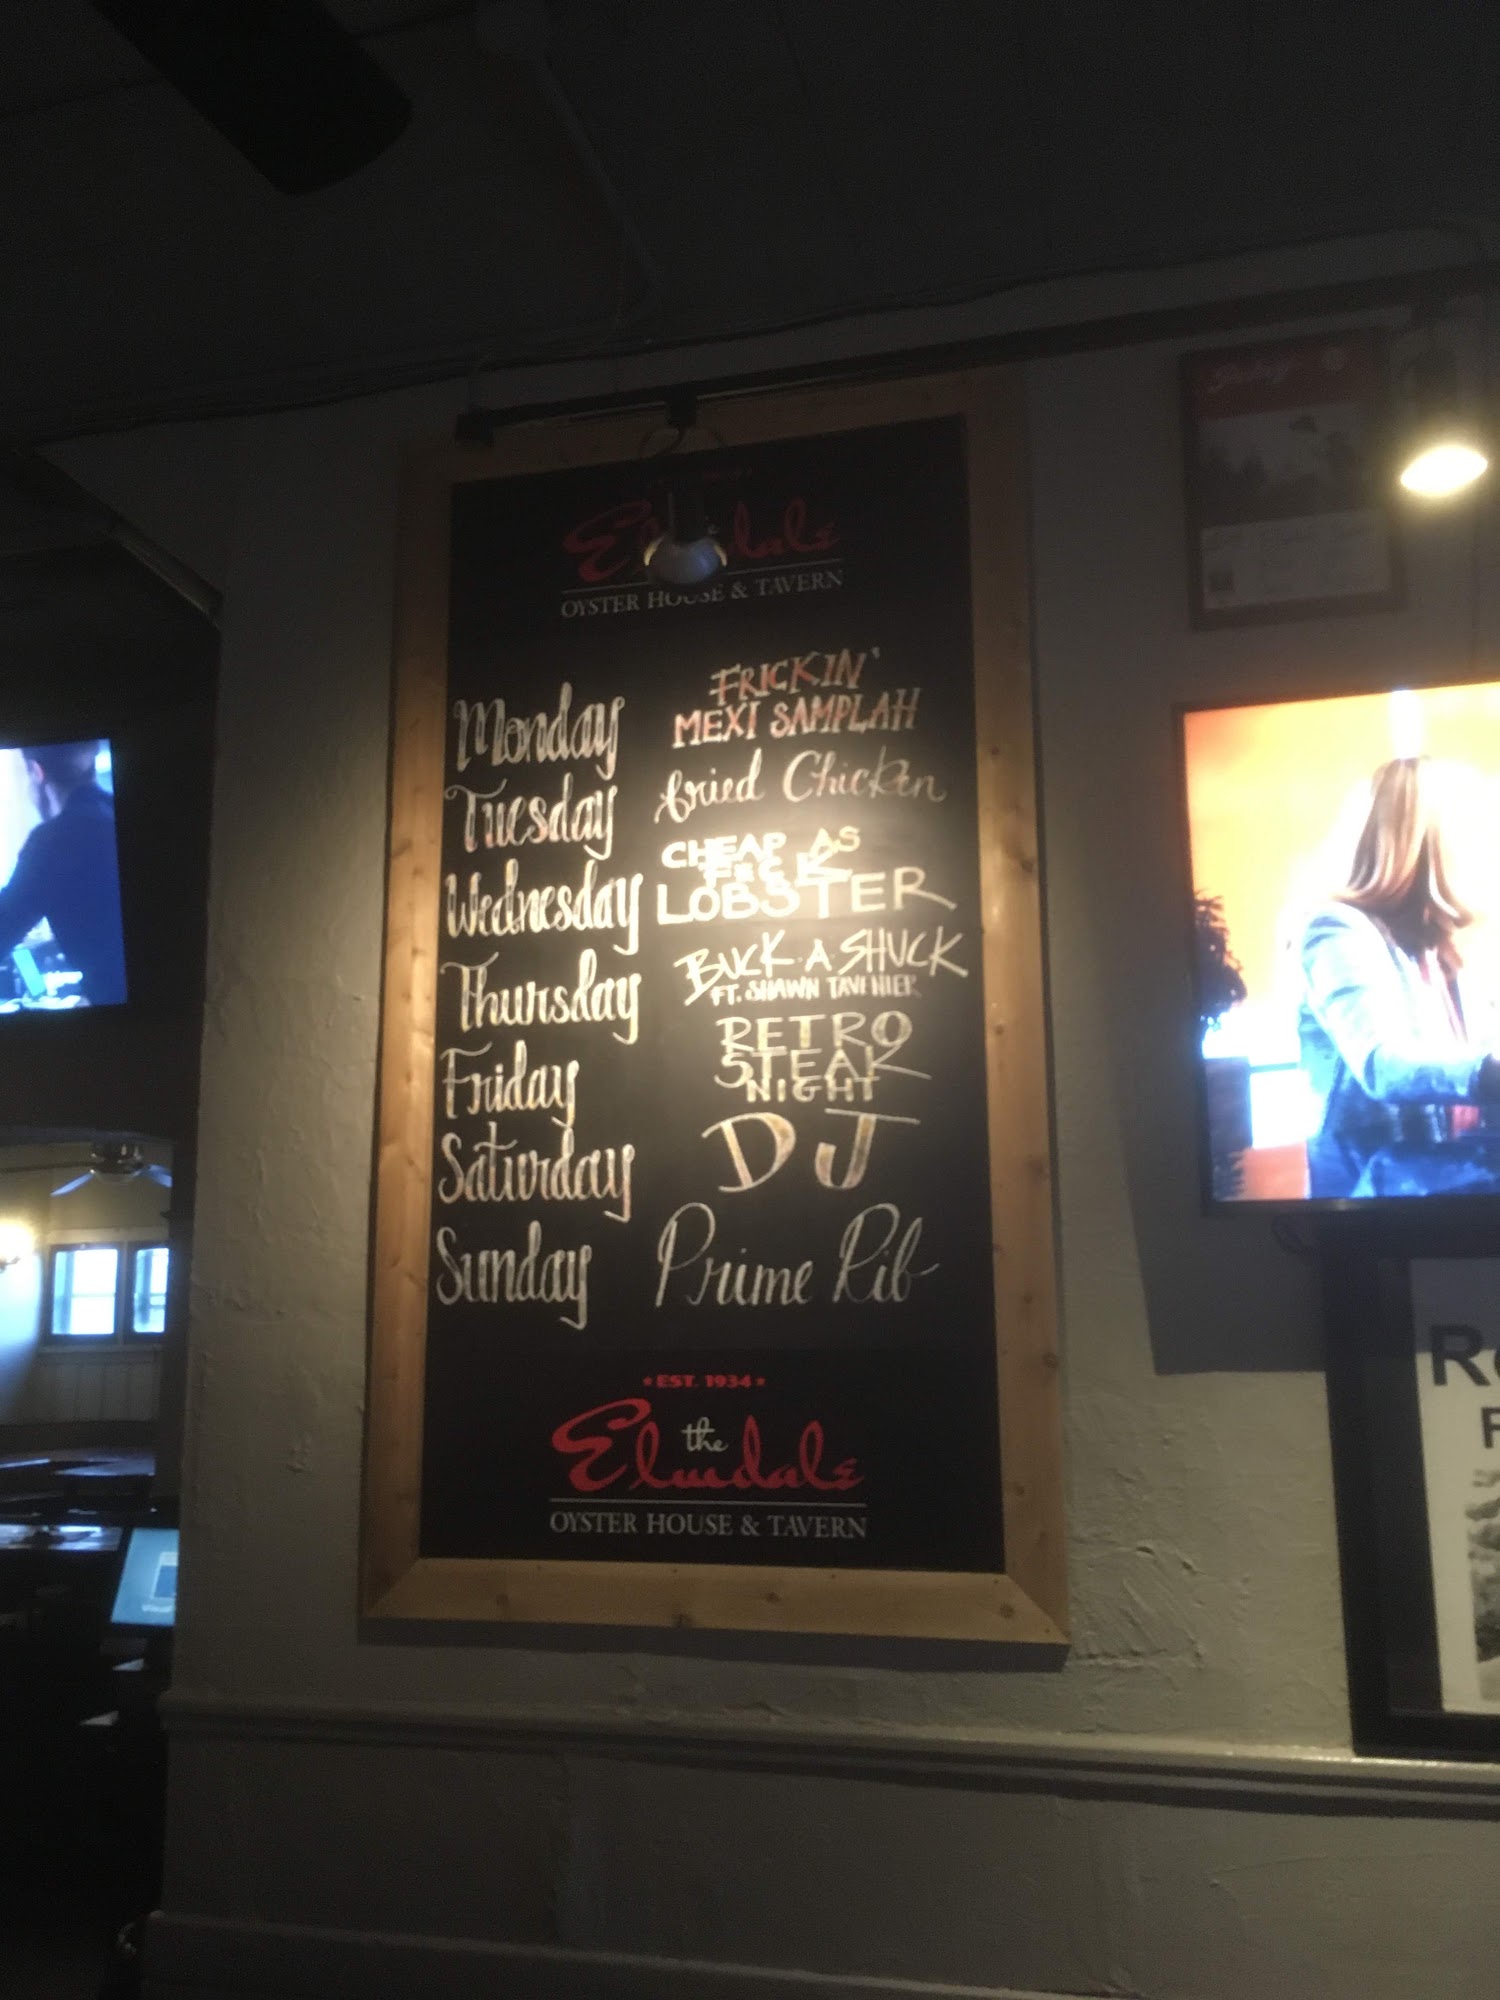 Elmdale
OYSTER HOUSE & TAVERN
Monday FRICKIN' MEXI SAMPLAH
Tuesday Fried Chicken
Wednesday CHEAP AS F*CK LOBSTER
Thursday BUCK·A·SHUCK FT. SHAWN TAVENIER
Friday RETRO STEAK NIGHT
Saturday DJ
Sunday Prime Rib
EST. 1934
the Elmdale
OYSTER HOUSE & TAVERN